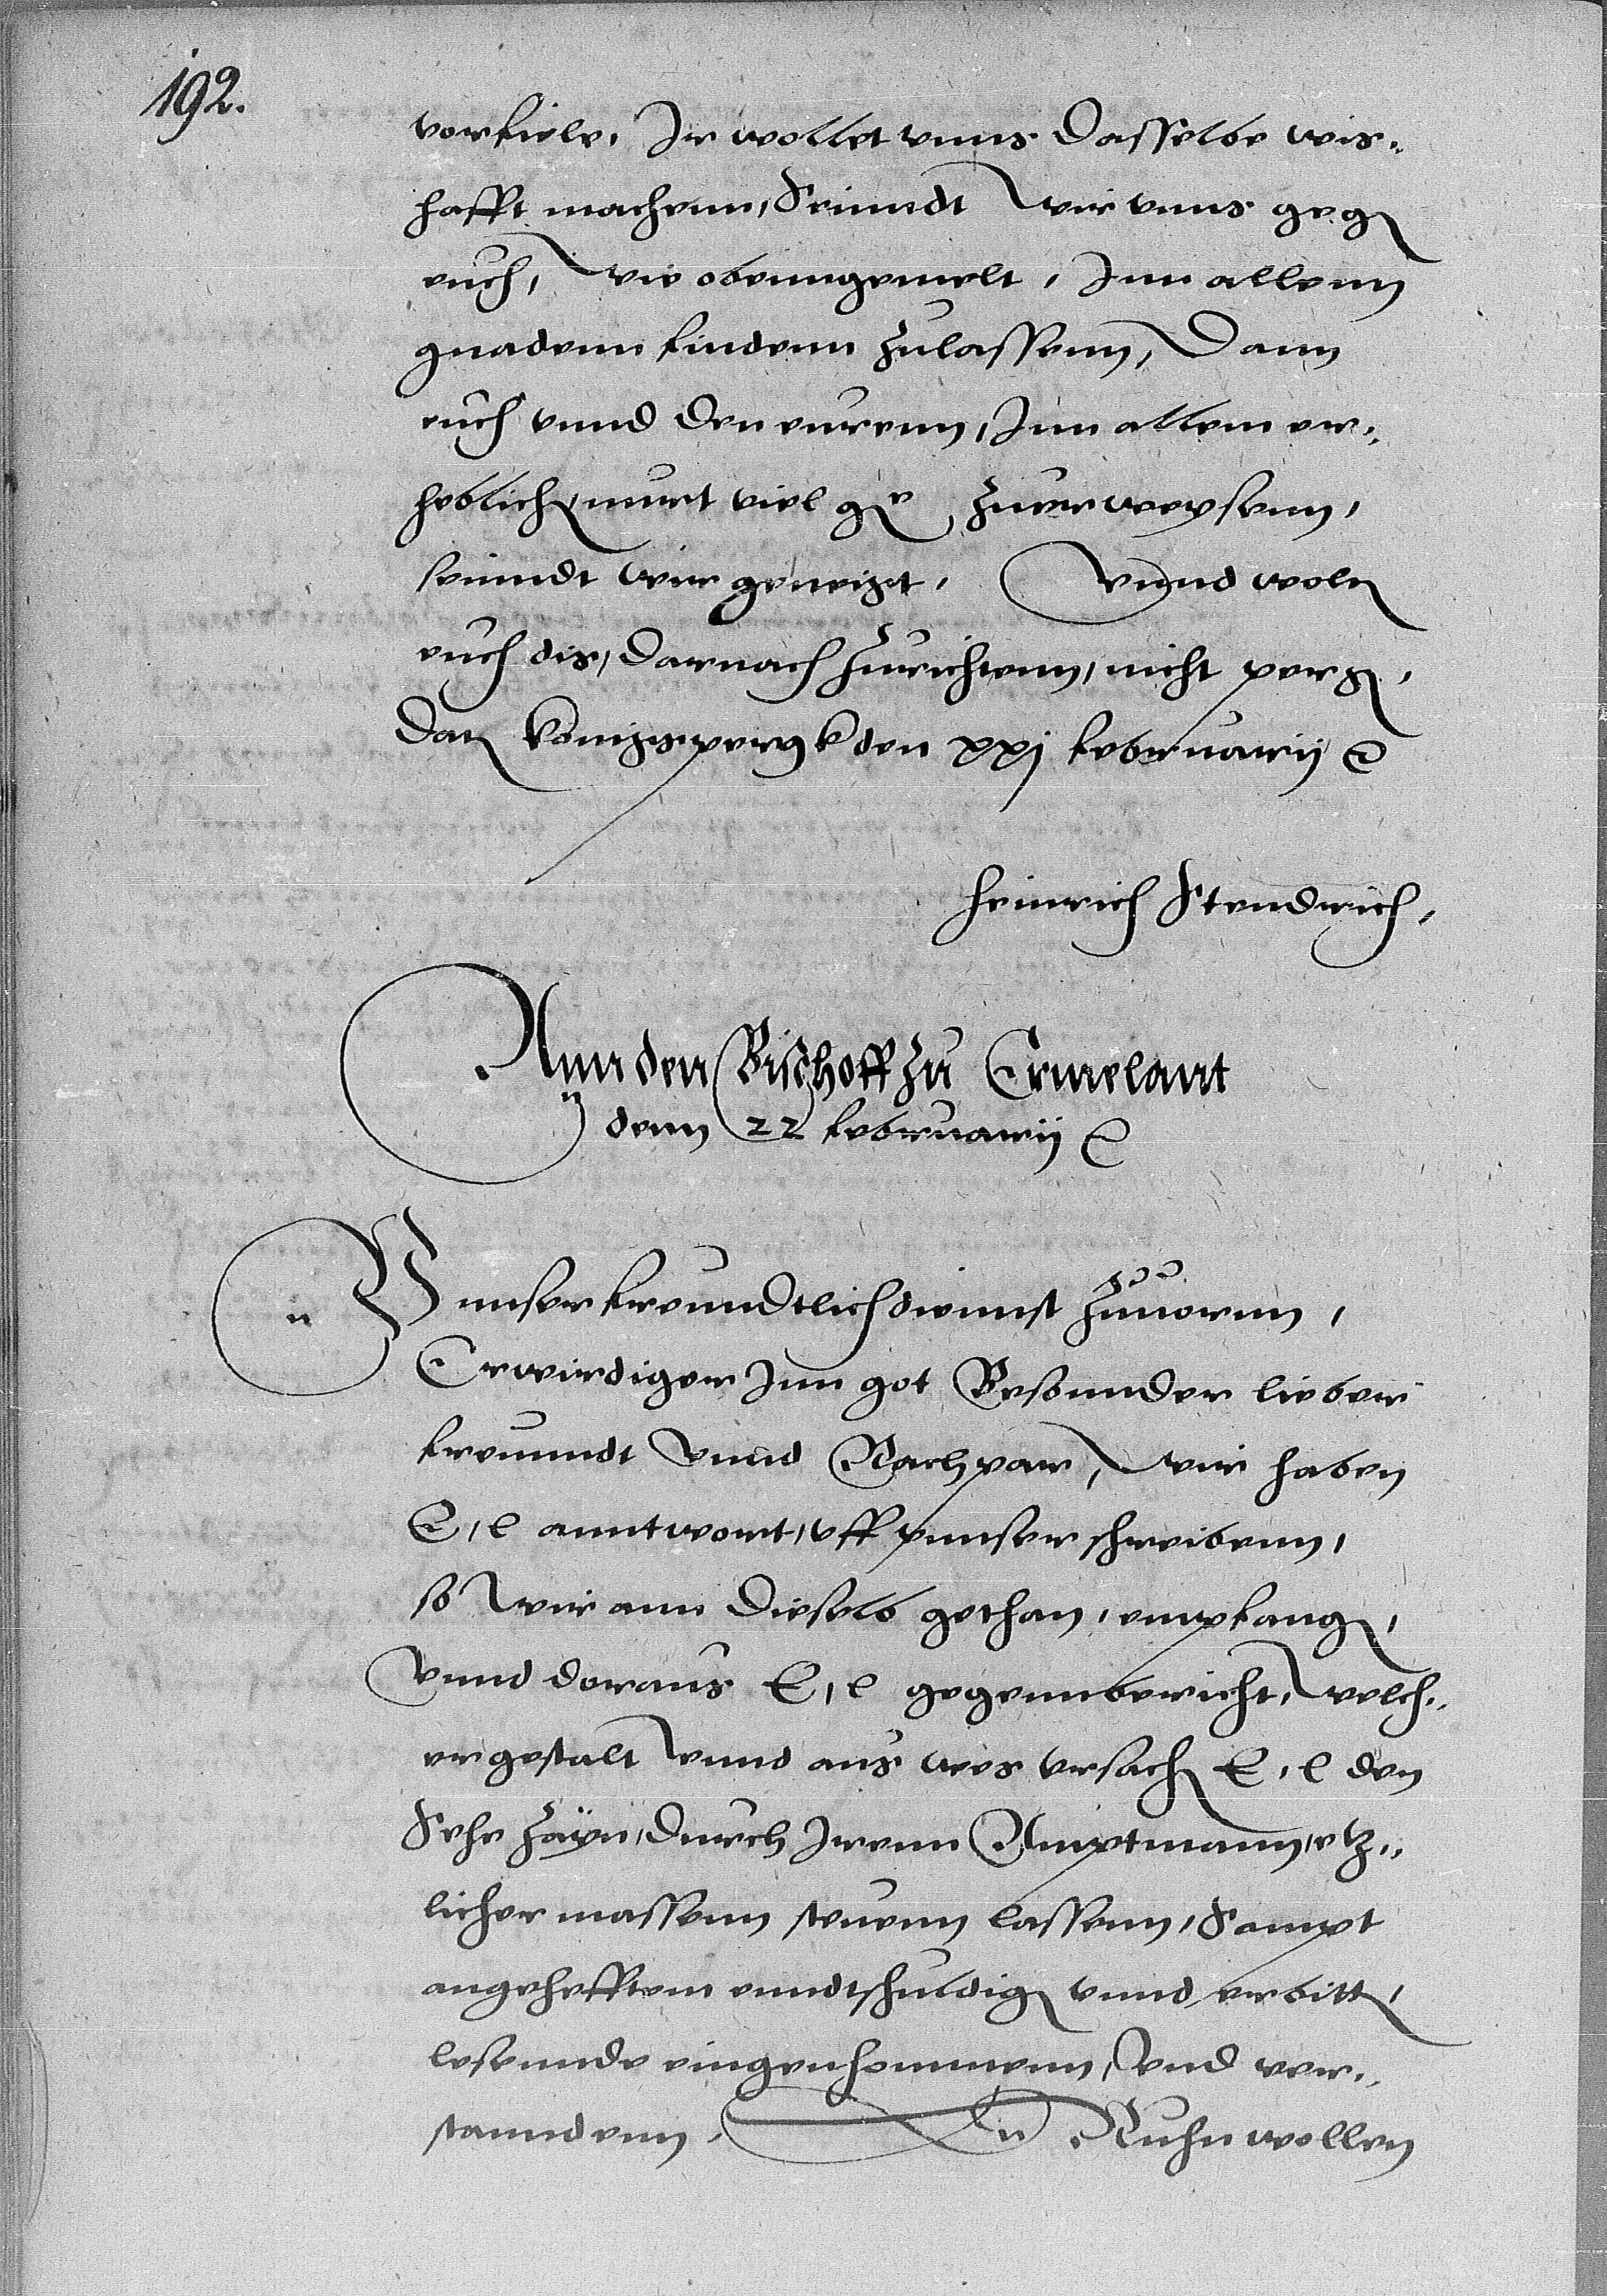 192.
vorfiele, Ir wollet vnns dasselbe wis„
hafft machenn, Seinndt wir vnns geg
euch, wie obenngemelt, Inn allenn
gnadenn findenn zulassenn, Dann
euch vnnd den eurenn, Inn allem er„
heblich, viel zuerweysenn,
seinndt wir geneigt, Vnnd woln
euch dis, darnach zurichtenn, nicht perg,
Dat Konigspergk den xxj februarij
Heinrich Stendrich,
Ann den Bischoff zu Ermelant
denn 22 februarij
Vnnser freundtlich diennst zuuornn,
Erwirdiger Inn got Besonnder lieber
freunndt vnnd Nachpar, wir haben
E, l anntwort, vff vnnser schreibenn,
so wir ann dieselb gethan, empfang,
Vnnd doraus E, l gegennbericht, welch„
er gestalt vnnd aus wes vrsach E, l den
durch Irenn Amptmann, etz„
licher massenn steuenn lassenn, Sampt
angehefftem enndtschuldig vnnd erbitt,
lesennde eingenhommenn, vnd ver„
stanndenn, Nuhn wollen